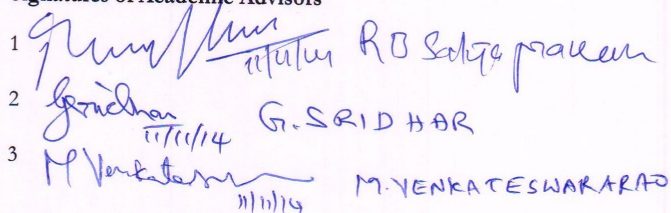 Signatures of Academic Advisors
1 11/11/14 R B Satya prakash
2 Gsridhar 11/11/14 G. SRIDHAR
3 M Venkatesw 11/11/14 M. VENKATESWARARAO